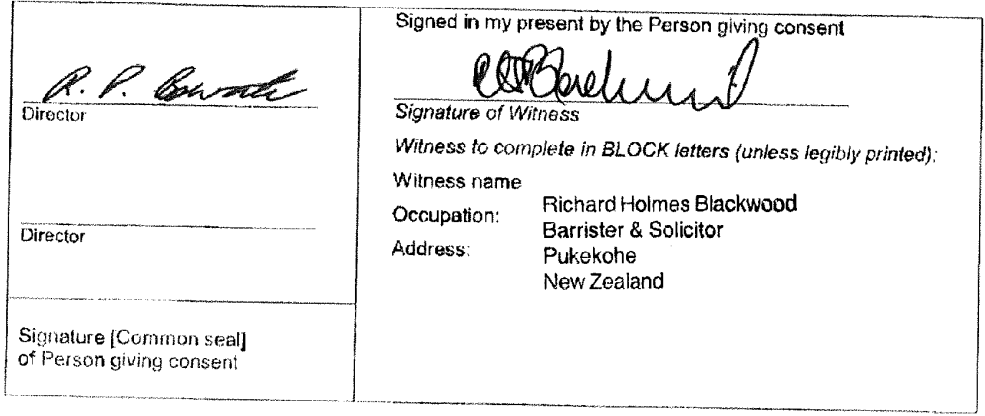 R. P.
Director
Director
Signature [Common seal]
of Person giving consent
Signed in my present by the Person giving consent
Signature of Witness
Witness to complete in BLOCK letters (unless legibly printed):
Witness name
Richard Holmes Blackwood
Occupation:
Barrister & Solicitor
Address:
Pukekohe
New Zealand